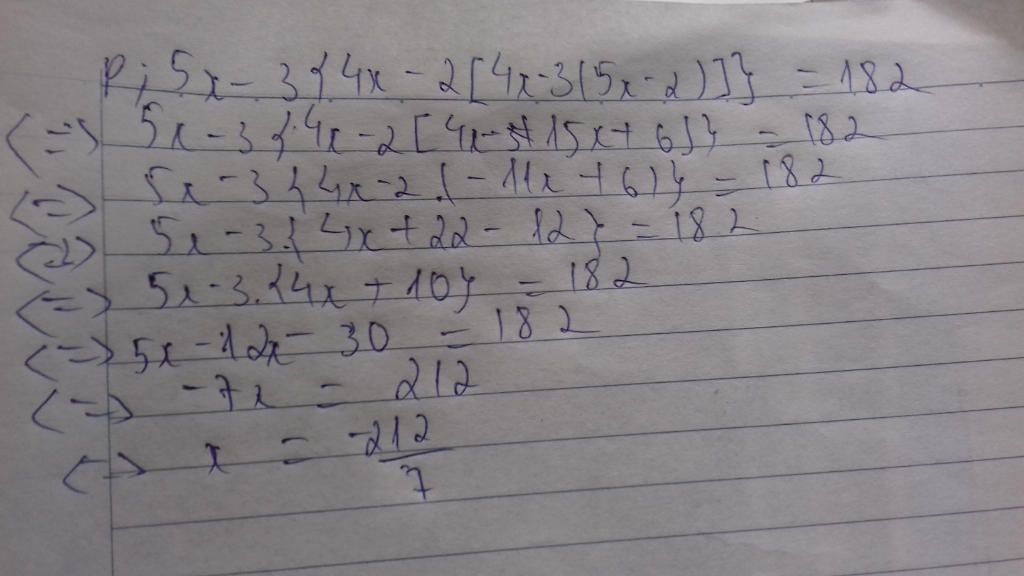 P; 5x - 3{4x - 2[4x-3(5x-2)]} = 182
<=> 5x - 3{4x - 2[4x-15x+6]} = 182
<=> 5x - 3{4x-2.(-11x+6)} = 182
<=> 5x - 3.{4x+22-12} = 182
<=> 5x-3.{4x+10} = 182
<=> 5x - 12x - 30 = 182
<=> -7x = 212
<=> x = -212/7